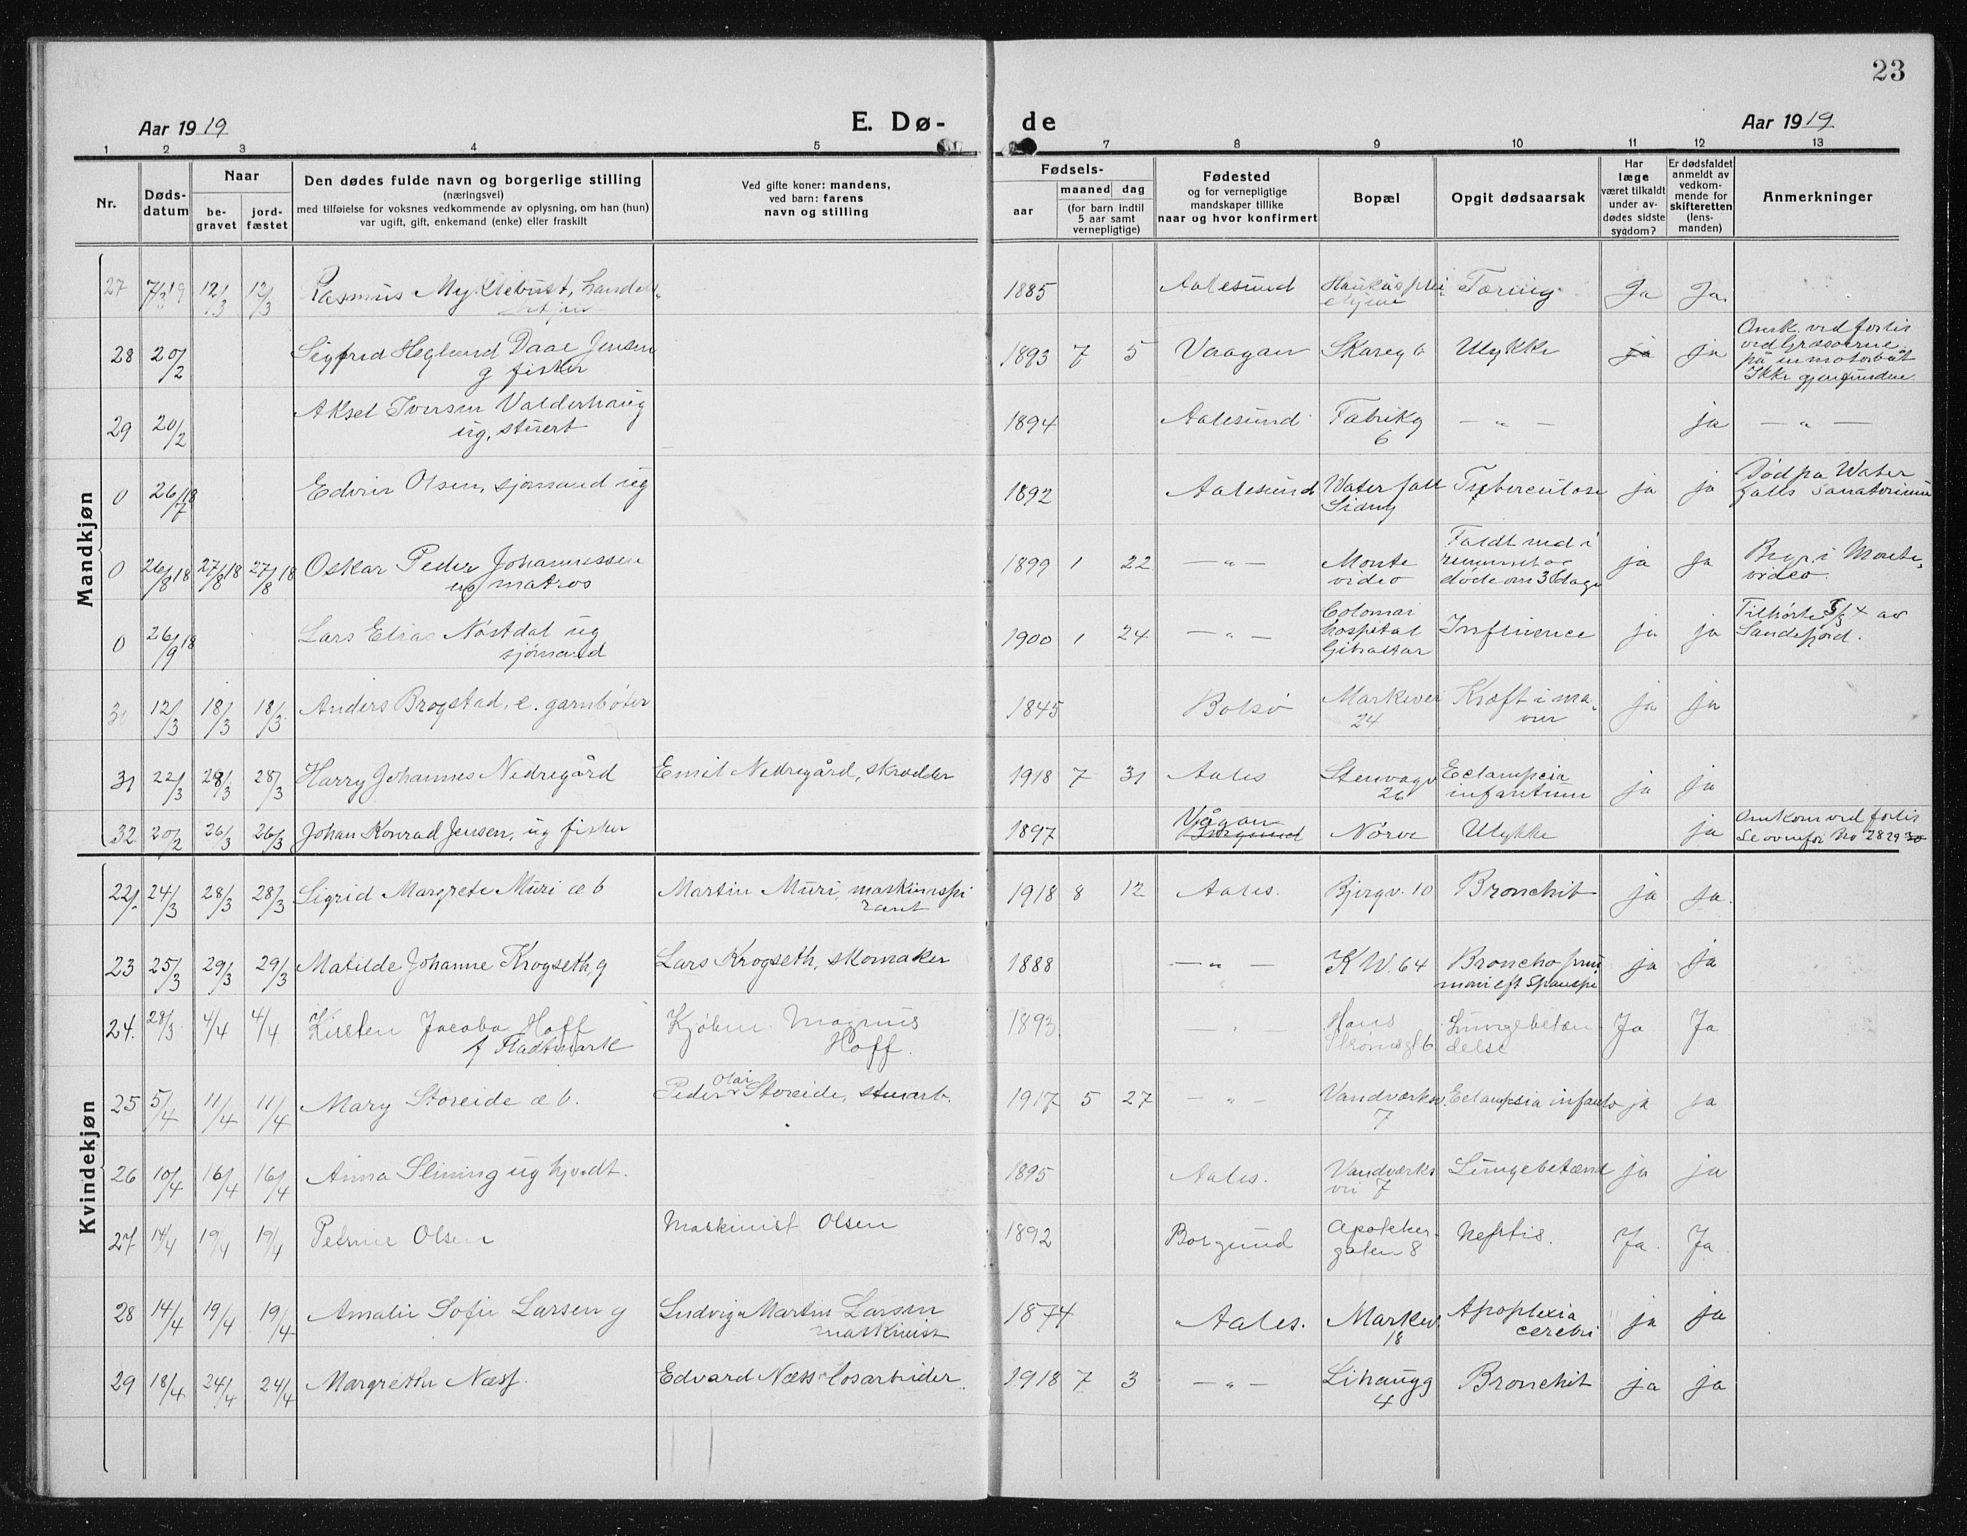 23
Aar 1919 E. Dø- de Aar 1919
1 2 3 4 5 7 8 9 10 11 12 13
Nr. Døds-datum Naar be-gravet jord-fæstet Den dødes fulde navn og borgerlige stilling (næringsvei) med tilføielse for voksnes vedkommende av oplysning, om han (hun) var ugift, gift, enkemand (enke) eller fraskilt Ved gifte koner: mandens, ved barn: farens navn og stilling Fødsels- aar maaned dag (for barn indtil 5 aar samt vernepligtige) Fødested og for vernepligtige mandskaper tillike naar og hvor konfirmert Bopæl Opgit dødsaarsak Har læge været tilkaldt under av-dødes sidste sygdom? Er dødsfaldet anmeldt av vedkom-mende for skifteretten (lens-manden) Anmerkninger
Mandkjøn
27 7/3 19 12/3 12/3 Rasmus Myklebust, handels- 1885 Aalesund Tæring Ja Ja
28 20/2 Sigfred Heglund Daae Jensen g fisker 1893 7 5 Vaagan Skareg 6 Ulykke ja ja Omk. ved forlis ved Græsøerne på en motorbåt Ikke gjenfundene
29 20/2 Aksel Iversen Valderhaug ug, stuert 1894 Aalesund Fabrikg 6 — " — ja — " —
0 26/7 18 Edvin Olsen, sjømand ug 1892 Aalesund Waterfall Sidny Tuberculose ja ja Død paa Water falls Sanatorium
0 26/8 18 27/8 18 27/8 18 Oskar Peder Johannessen ug matros 1899 1 22 — " — Monte video Faldt ned i rummet og døde om 3 dage ja ja Begr. i Monte video
0 26/9 18 Lars Elias Nøstdal ug sjømand 1900 1 24 — " — Colonial hospital Gibraltar Influence ja ja Tilhørte S/S av Sandefjord.
31 12/3 18/3 18/3 Anders Brogstad, e. garnbøter 1845 Bolsø Markevei 24 Kræft i maven ja ja
31 22/3 28/3 28/3 Harry Johannes Nedregård Emil Nedregård, skrædder 1918 7 31 Aales Stenvagv 26 Eclampsia infantum ja ja
32 20/2 26/3 26/3 Johan Konrad Jensen, ug fisker 1897 Vågan Borgund Nørve Ulykke ja Omkom ved forlis Se ovenfor No 28 29 30
Kvindekjøn
22 24/3 28/3 28/3 Sigrid Margrete Muri æ b Martin Muri, maskinaspirant 1918 8 12 Aales. Bjergv. 10 Bronchit ja ja.
23 25/3 29/3 29/3 Matilde Johanne Krogseth g Lars Krogseth, skomaker 1888 — " — K W. 64 Broncho pneumoni eft spansksy ja ja
24. 28/3 4/4 4/4 Kirsten Jacoba Hoff f Kjøbm. Magnus Hoff. 1893 " Hans Strømsgt 6 Lungebetændelse Ja Ja
25 5/4 11/4 11/4 Mary Storeide æ b. Peder Olai Storeide, stuarb. 1917 5 27 — " — Vandværksv. 7 Eclampsia infant ja ja
26 10/4 16/4 16/4 Anna Slining ug hjvdt. 1895 Aales. Vandværksvei 7 Lungebetænd ja ja
27 14/4 19/4 19/4 Petrine Olsen Maskinist Olsen 1892 Borgund Apotekergaten 8 Nefritis. Ja. Ja
28 14/4 19/4 19/4 Amalie Sofie Larsen g Ludvig Martin Larsen maskinist 1874 Aales. Markev. 18 Apoplexia cerebri ja ja
29 18/4 24/4 24/4 Margrethe Næss. Edvard Næss losarbeider. 1918 7 3 — " — Lihaugg 4 Bronchit ja ja